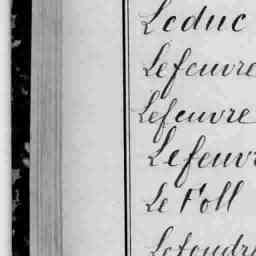 Leduc
Lefeuvre
Lefeuvre
Lefeuvr
Le Foll
Lefoudr